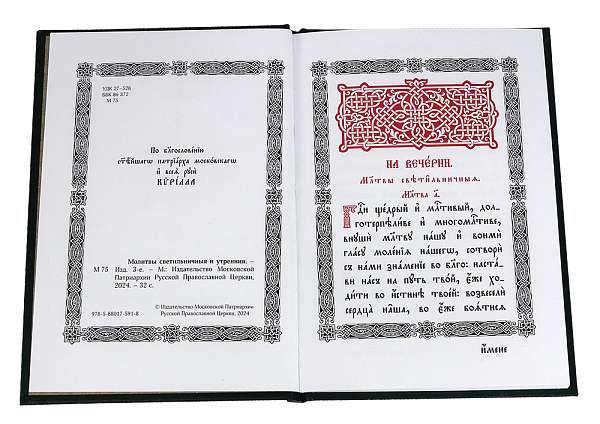 УДК 27-528
ББК 86 372
М 75
По бл҃гословенїю
ст҃ѣйшагѡ патрїа́рха моско́вскагѡ
и҆ всеѧ̀ рꙋсѝ
КѴРІ́ЛЛА
Молитвы светильничныя и утренния. –
М 75 Изд. 3-е. – М.: Издательство Московской
Патриархии Русской Православной Церкви,
2024. – 32 с.
© Издательство Московской Патриархии
978-5-88017-591-8 Русской Православной Церкви, 2024
НА ВЕЧЕ́РНИ.
Мл҃твы свѣти́льничныѧ.
Мл҃тва а҃.
Гдⷭ҇и ще́дрый и҆ млⷭ҇тивый, дол-
готерпѣли́ве и҆ многомлⷭ҇тиве,
внꙋшѝ мл҃твꙋ на́шꙋ и҆ вонмѝ
гла́сꙋ моле́нїѧ на́шегѡ, сотворѝ
съ на́ми зна́менїе во бл҃го: наста́-
ви на́съ на пꙋ́ть тво́й, є҆́же хо-
ди́ти во и҆́стинѣ твое́й: возвеселѝ
сердца̀ на̑ша, во є҆́же боѧ́тисѧ
и҆́мене